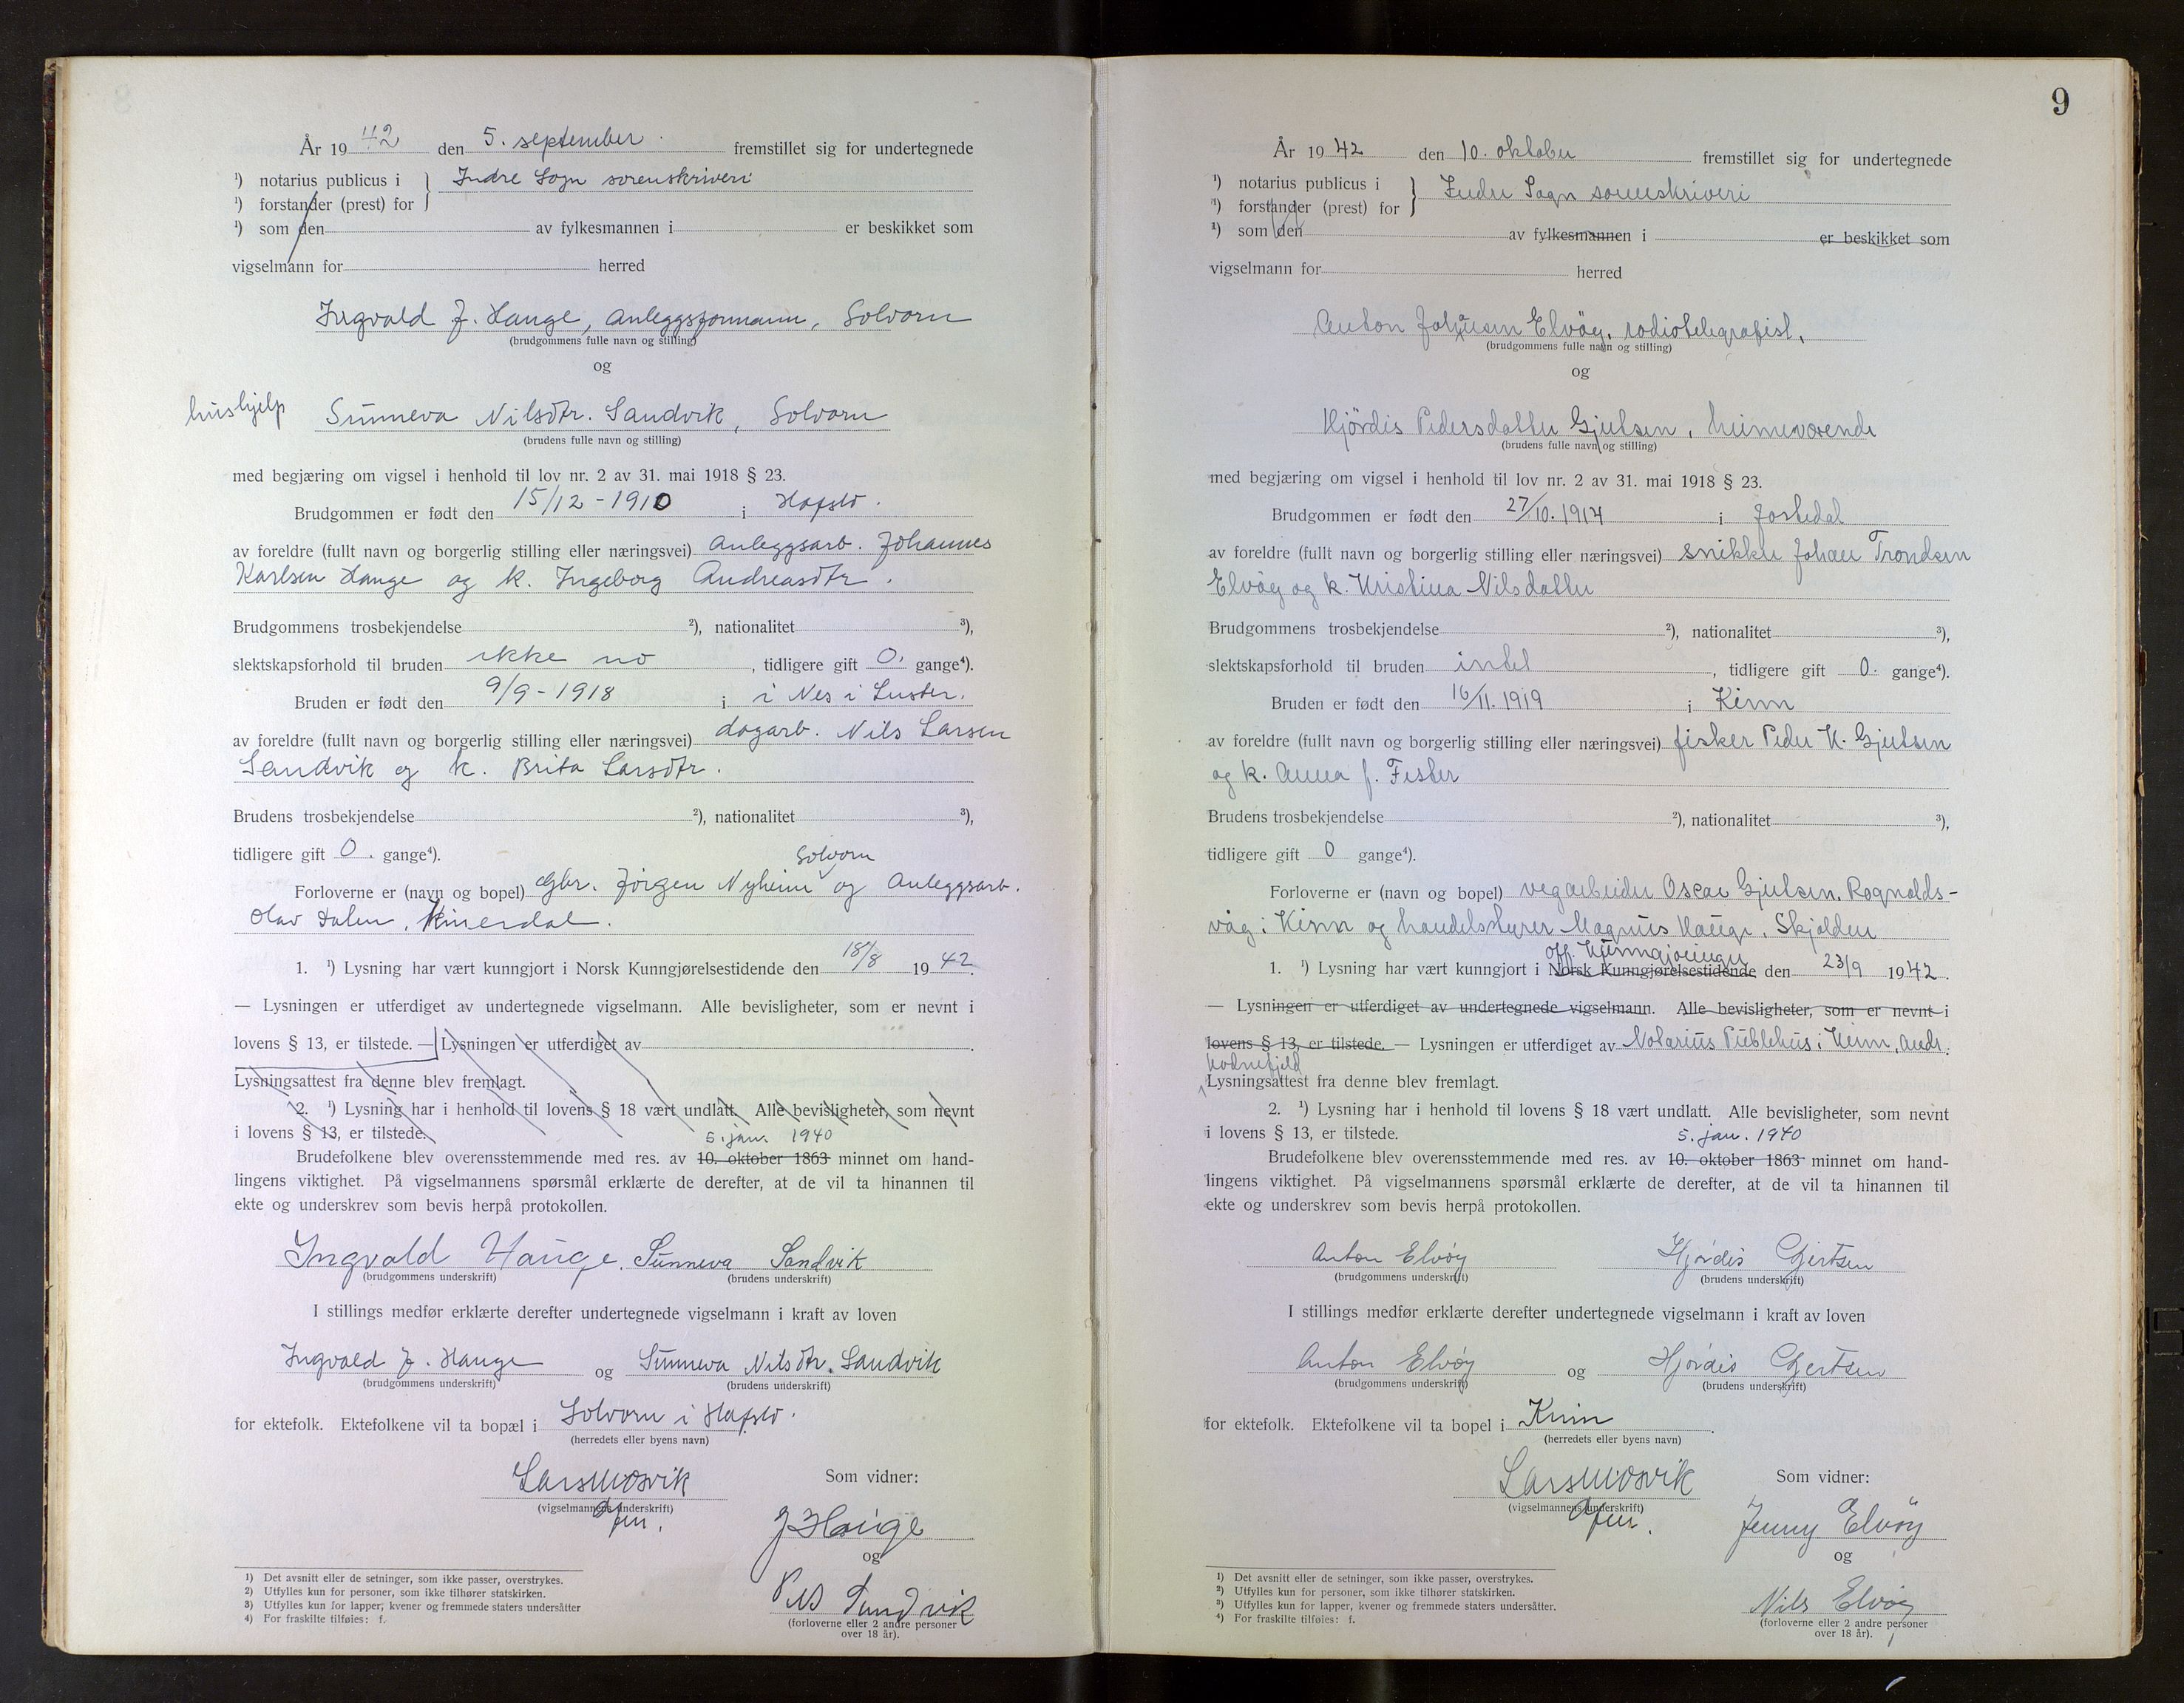 År 19 42 den 5. september fremstillet sig for undertegnede
¹) notarius publicus i } Indre Sogn sorenskriveri
¹) forstander (prest) for
¹) som den av fylkesmannen i er beskikket som
vigselmann for herred
Ingvald J. Hauge, anleggsformann, Solvorn
(brudgommens fulle navn og stilling)
og
hushjelp Sunneva Nilsdtr. Sandvik, Solvorn
(brudens fulle navn og stilling)
med begjæring om vigsel i henhold til lov nr. 2 av 31. mai 1918 § 23.
Brudgommen er født den 15/12 - 1910 i Hafslo.
av foreldre (fullt navn og borgerlig stilling eller næringsvei) anleggsarb. Johannes
Karlsen Hauge og k. Ingeborg Andreasdtr.
Brudgommens trosbekjendelse ²), nationalitet ³),
slektskapsforhold til bruden ikke no, tidligere gift 0. gange⁴).
Bruden er født den 9/9 - 1918 i i Nes i Luster.
av foreldre (fullt navn og borgerlig stilling eller næringsvei) dagarb. Nils Larsen
Sandvik og k. Brita Larsdtr.
Brudens trosbekjendelse ²), nationalitet ³),
tidligere gift 0. gange⁴).
Solvorn
Forloverne er (navn og bopel) gbr. Jørgen Nyheim og anleggsarb.
Olav Dalen,
1. ¹) Lysning har vært kunngjort i Norsk Kunngjørelsestidende den 18/8 19 42.
— Lysningen er utferdiget av undertegnede vigselmann. Alle bevisligheter, som er nevnt i
lovens § 13, er tilstede. — Lysningen er utferdiget av
Lysningsattest fra denne blev fremlagt.
2. ¹) Lysning har i henhold til lovens § 18 vært undlatt. Alle bevisligheter, som nevnt
i lovens § 13, er tilstede.
5. jan. 1940
Brudefolkene blev overensstemmende med res. av 10. oktober 1863 minnet om hand-
lingens viktighet. På vigselmannens spørsmål erklærte de derefter, at de vil ta hinannen til
ekte og underskrev som bevis herpå protokollen.
Ingvald Hauge. Sunneva Sandvik
(brudgommens underskrift) (brudens underskrift)
I stillings medfør erklærte derefter undertegnede vigselmann i kraft av loven
Ingvald J. Hauge og Sunneva Nilsdtr. Sandvik
(brudgommens underskrift) (brudens underskrift)
for ektefolk. Ektefolkene vil ta bopæl i Solvorn i Hafslo.
(herredets eller byens navn)
Lars Mosvik Som vidner:
(vigselmannens underskrift)
J Hauge
og
Nils Sandvik
(forloverne eller 2 andre personer
over 18 år).
1) Det avsnitt eller de setninger, som ikke passer, overstrykes.
2) Utfylles kun for personer, som ikke tilhører statskirken.
3) Utfylles kun for lapper, kvener og fremmede staters undersåtter
4) For fraskilte tilføies: f.
9
År 19 42 den 10. oktober fremstillet sig for undertegnede
¹) notarius publicus i } Indre Sogn sorenskriveri
¹) forstander (prest) for
¹) som den av fylkesmannen i er beskikket som
vigselmann for herred
Anton Johansen Elvøy, radiotelegrafist,
(brudgommens fulle navn og stilling)
og
Hjørdis Pedersdatter Gjertsen, heimeværende
(brudens fulle navn og stilling)
med begjæring om vigsel i henhold til lov nr. 2 av 31. mai 1918 § 23.
Brudgommen er født den 27/10. 1914 i Jostedal
av foreldre (fullt navn og borgerlig stilling eller næringsvei) snikker Johan Trondsen
Elvøy og k. Kristina Nilsdatter
Brudgommens trosbekjendelse ²), nationalitet ³),
slektskapsforhold til bruden intet, tidligere gift 0. gange⁴).
Bruden er født den 16/11. 1919 i Kinn
av foreldre (fullt navn og borgerlig stilling eller næringsvei) fisker Peder K. Gjertsen
og k. Anna f. Fester
Brudens trosbekjendelse ²), nationalitet ³),
tidligere gift 0 gange⁴).
Forloverne er (navn og bopel) vegarbeider Oscar Gjertsen, Rognalds-
våg i Kinn og handelsstyrer Magnus Hauge, Skjolden
off. kunngjøringer
1. ¹) Lysning har vært kunngjort i Norsk Kunngjørelsestidende den 23/9 1942.
— Lysningen er utferdiget av undertegnede vigselmann. Alle bevisligheter, som er nevnt i
lovens § 13, er tilstede. — Lysningen er utferdiget av Notarius Publikus i Kinn, Andr.
Kodnefjeld
Lysningsattest fra denne blev fremlagt.
2. ¹) Lysning har i henhold til lovens § 18 vært undlatt. Alle bevisligheter, som nevnt
i lovens § 13, er tilstede.
5. jan. 1940
Brudefolkene blev overensstemmende med res. av 10. oktober 1863 minnet om hand-
lingens viktighet. På vigselmannens spørsmål erklærte de derefter, at de vil ta hinannen til
ekte og underskrev som bevis herpå protokollen.
Anton Elvøy Hjørdis Gjertsen
(brudgommens underskrift) (brudens underskrift)
I stillings medfør erklærte derefter undertegnede vigselmann i kraft av loven
Anton Elvøy og Hjørdis Gjertsen
(brudgommens underskrift) (brudens underskrift)
for ektefolk. Ektefolkene vil ta bopel i Kinn.
(herredets eller byens navn)
Lars Mosvik Som vidner:
(vigselmannens underskrift)
Jenny Elvøy
og
Nils Elvøy
(forloverne eller 2 andre personer
over 18 år).
¹) Det avsnitt eller de setninger, som ikke passer, overstrykes.
²) Utfylles kun for personer, som ikke tilhører statskirken.
³) Utfylles kun for lapper, kvener og fremmede staters undersåtter.
⁴) For fraskilte tilføies: f.